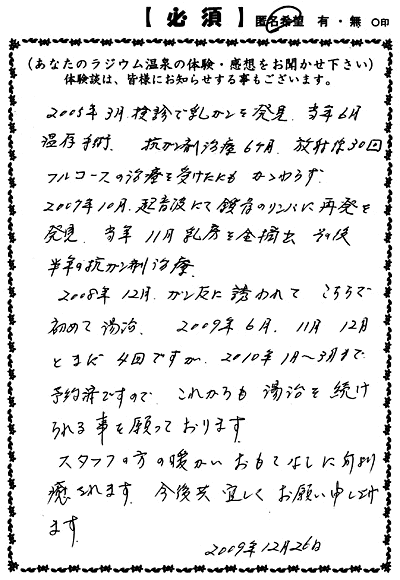 【必須】 匿名希望 有・無 ○印
(あなたのラジウム温泉の体験・感想をお聞かせ下さい)
体験談は、皆様にお知らせする事もございます。
2005年3月検診で乳ガンを発見、当年6月
温存手術、抗ガン剤治療6ヶ月、放射線30回
フルコースの治療を受けたにもかかわらず、
2007年10月、超音波にて鎖骨のリンパに再発を
発見、当年11月乳房を全摘出 その後
半年の抗ガン剤治療、
2008年12月、ガン友に誘われて こちらで
初めて湯治、2009年6月、11月 12月
とまだ4回ですが、2010年1月〜3月まで
予約済ですので、これからも湯治を続け
られる事を願っております
スタッフの方の暖かいおもてなしに
癒されます、今後共宜しくお願い申し上げ
ます。
2009年12月26日